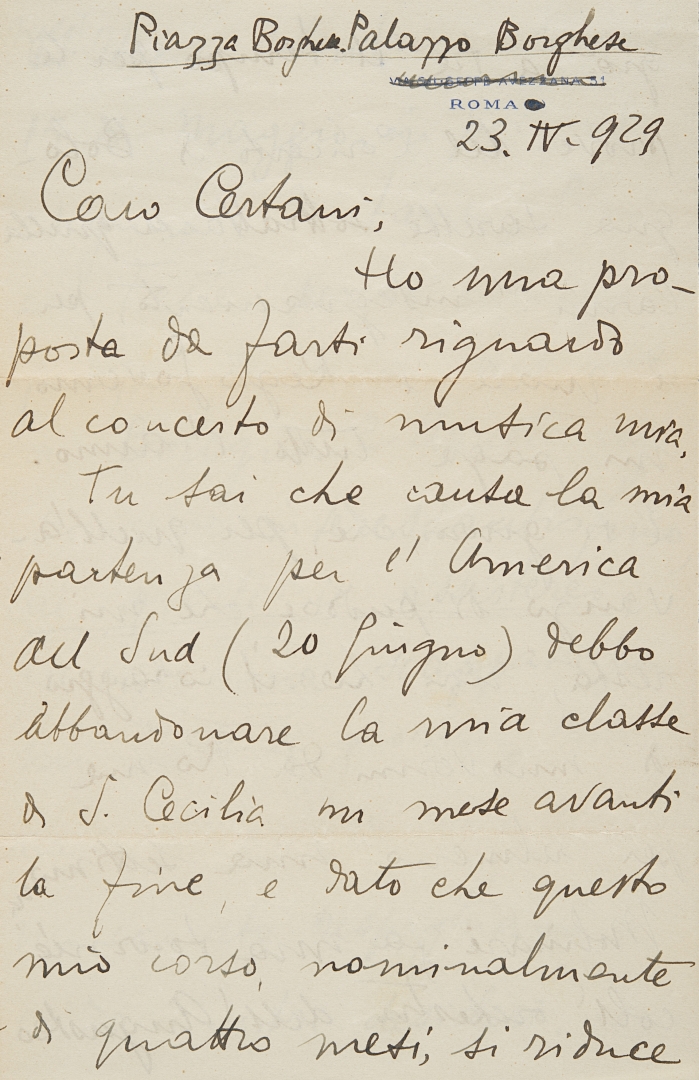 Piazza Borghese. Palazzo Borghese
ROMA
23. IV. 929
Caro Certani,
Ho una pro-
posta da farti riguardo
al concerto di musica mia.
Tu sai che causa la mia
partenza per l'America
del Sud (20 Giugno) debbo
abbandonare la mia classe
di S. Cecilia un mese avanti
la fine, e dato che questo
mio corso, nominalmente
di quattro mesi, si riduce